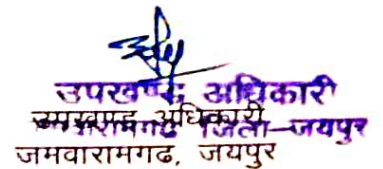 उपखण्ड अधिकारी
उपखण्ड अधिकारी
जमवारामगढ जिला-जयपुर
जमवारामगढ, जयपुर